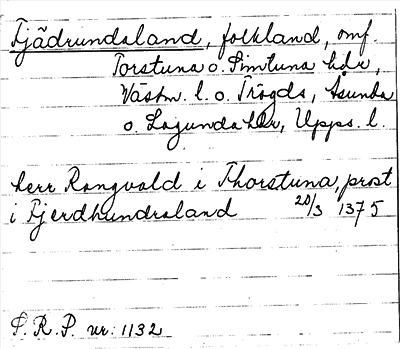 Fjädrundaland, folkland, omf.
Torstuna o. Simtuna hdr,
Västm. l. o. Trögds, Åsunda
o. Lagunda hdr, Upps. l.
herr Rangvald i Thorstuna, prost
i Fjerdhundraland 20/3 1375
S. R. P. nr: 1132